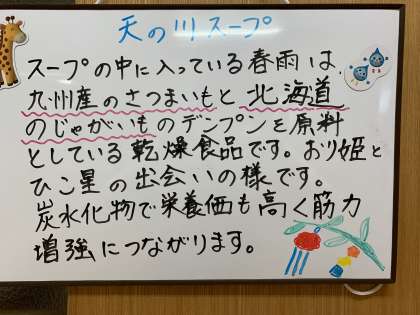 天の川スープ
スープの中に入っている春雨は
九州産のさつまいもと北海道
のじゃがいものデンプンを原料
としている乾燥食品です。おり姫と
ひこ星の出会いの様です。
炭水化物で栄養価も高く筋力
増強につながります。